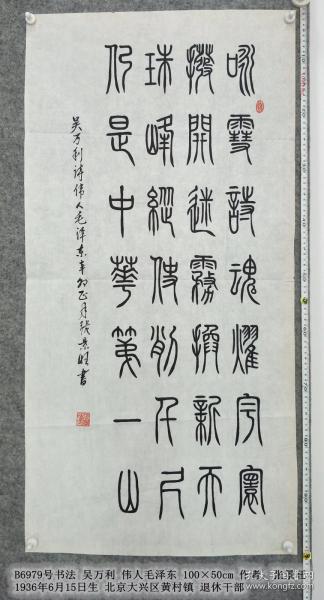 咏雪詩魂耀宇寰
撥開迷霧換新天
珠峰縱使削千尺
仍是中華第一山
吴万利诗伟人毛泽东辛卯正月张景旺书
B6979号书法 吴万利 伟人毛泽东 100×50cm 作者：张景旺
1936年6月15日生 北京大兴区黄村镇 退休干部